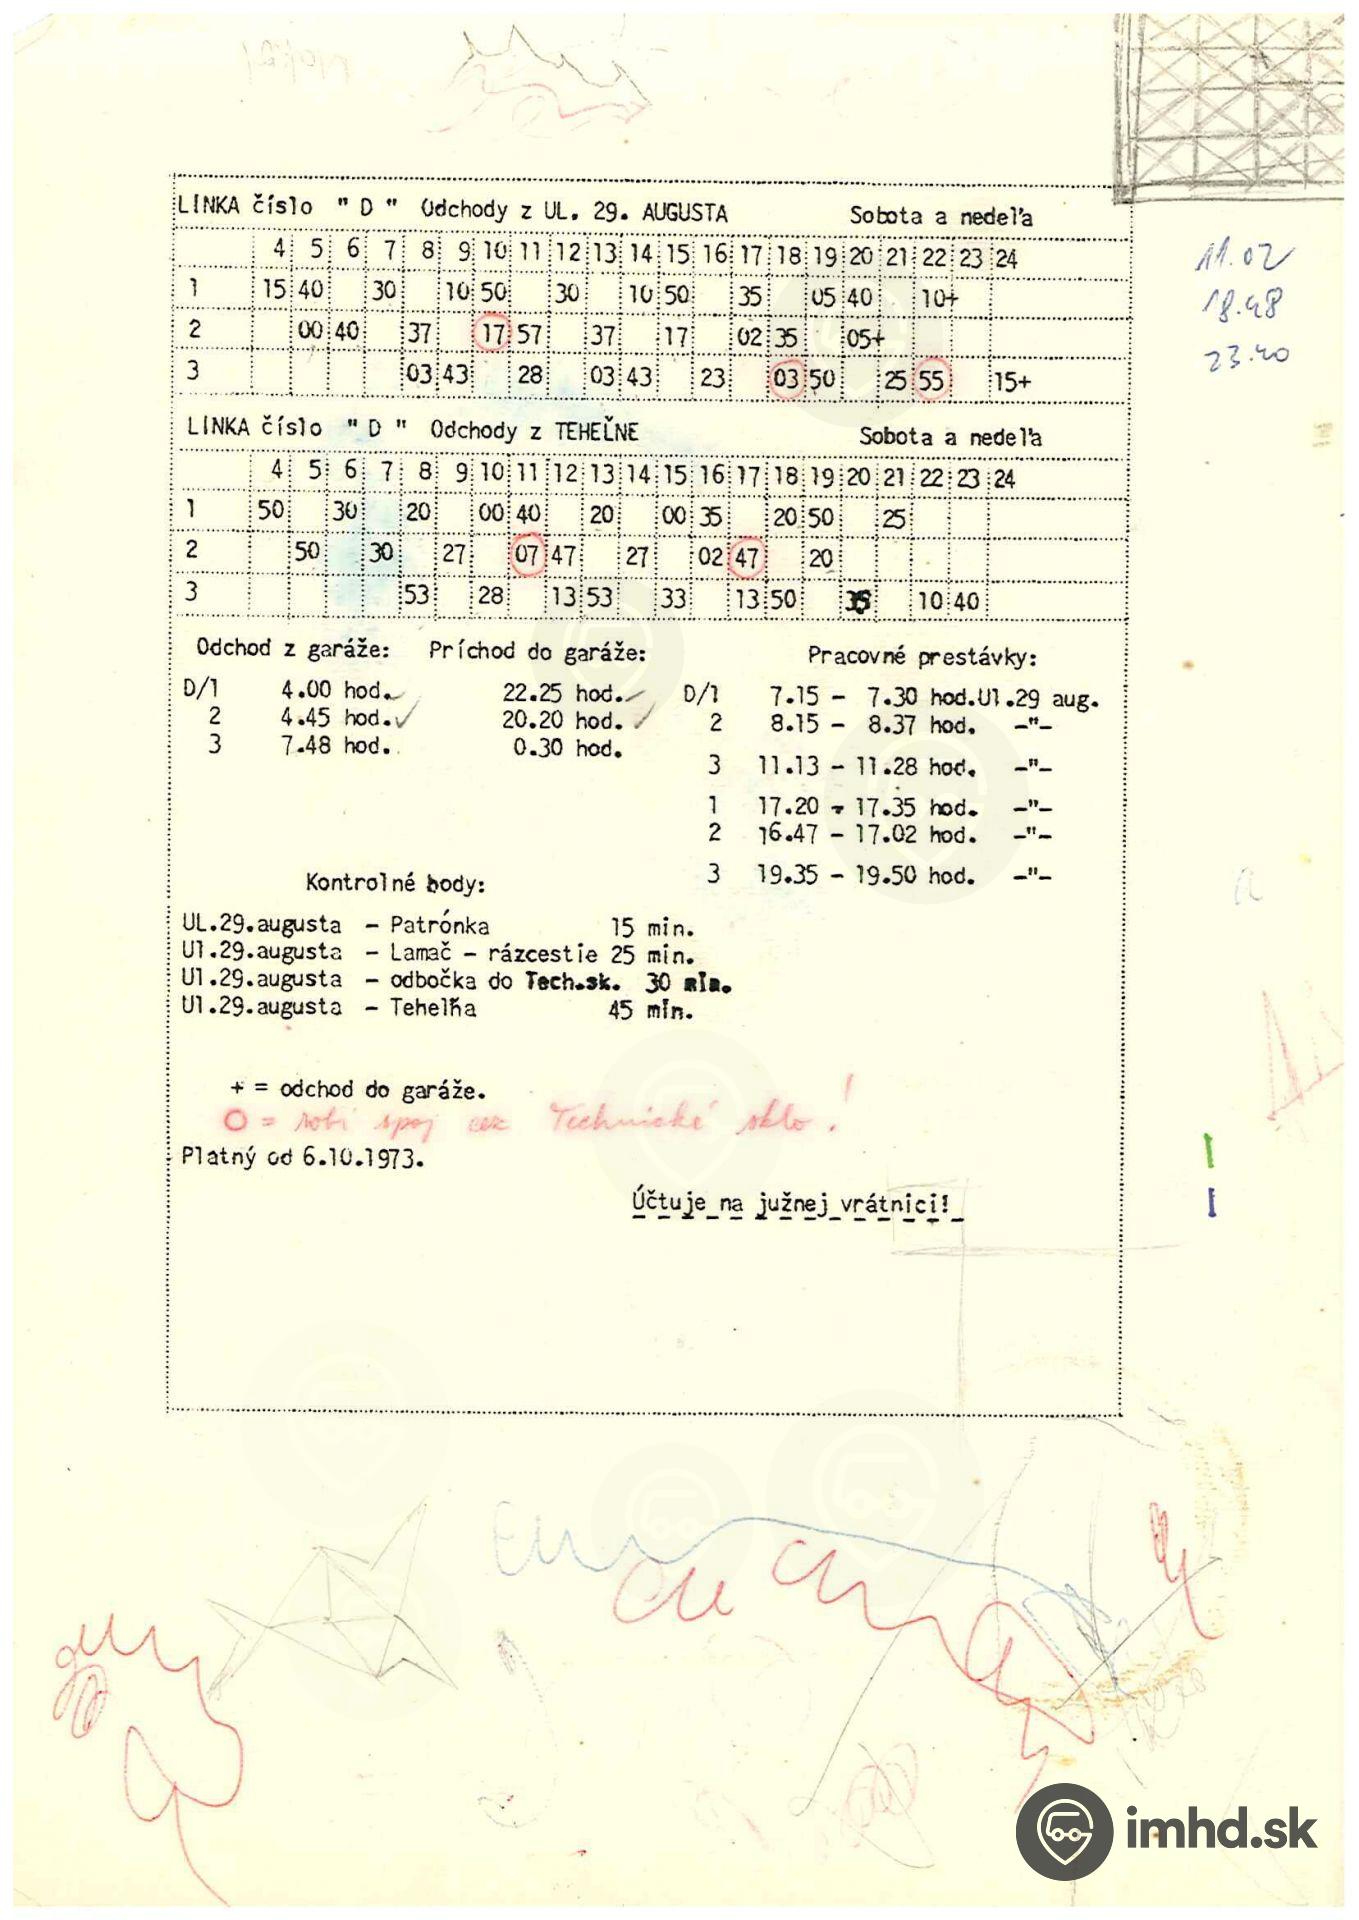 LINKA číslo "D" Odchody z UL. 29. AUGUSTA Sobota a nedeľa
4 5 6 7 8 9 10 11 12 13 14 15 16 17 18 19 20 21 22 23 24
1 15 40 30 10 50 30 10 50 35 05 40 10+
2 00 40 37 17 57 37 17 02 35 05+
3 03 43 28 03 43 23 03 50 25 55 15+
LINKA číslo "D" Odchody z TEHEĽNE Sobota a nedeľa
4 5 6 7 8 9 10 11 12 13 14 15 16 17 18 19 20 21 22 23 24
1 50 30 20 00 40 20 00 35 20 50 25
2 50 30 27 07 47 27 02 47 20
3 53 28 13 53 33 13 50 10 40
Odchod z garáže: Príchod do garáže: Pracovné prestávky:
D/1 4.00 hod. 22.25 hod. D/1 7.15 - 7.30 hod.Ul.29 aug.
2 4.45 hod. 20.20 hod. 2 8.15 - 8.37 hod. -"-
3 7.48 hod. 0.30 hod.
3 11.13 - 11.28 hod. -"-
1 17.20 - 17.35 hod. -"-
2 16.47 - 17.02 hod. -"-
3 19.35 - 19.50 hod. -"-
Kontrolné body:
UL.29.augusta - Patrónka 15 min.
Ul.29.augusta - Lamač - rázcestie 25 min.
Ul.29.augusta - odbočka do Tech.sk. 30 min.
Ul.29.augusta - Tehelňa 45 min.
+ = odchod do garáže.
O = robí spoj cez Technické sklo!
Platný od 6.10.1973.
Účtuje na južnej vrátnici!
11.02
18.48
23.40
imhd.sk